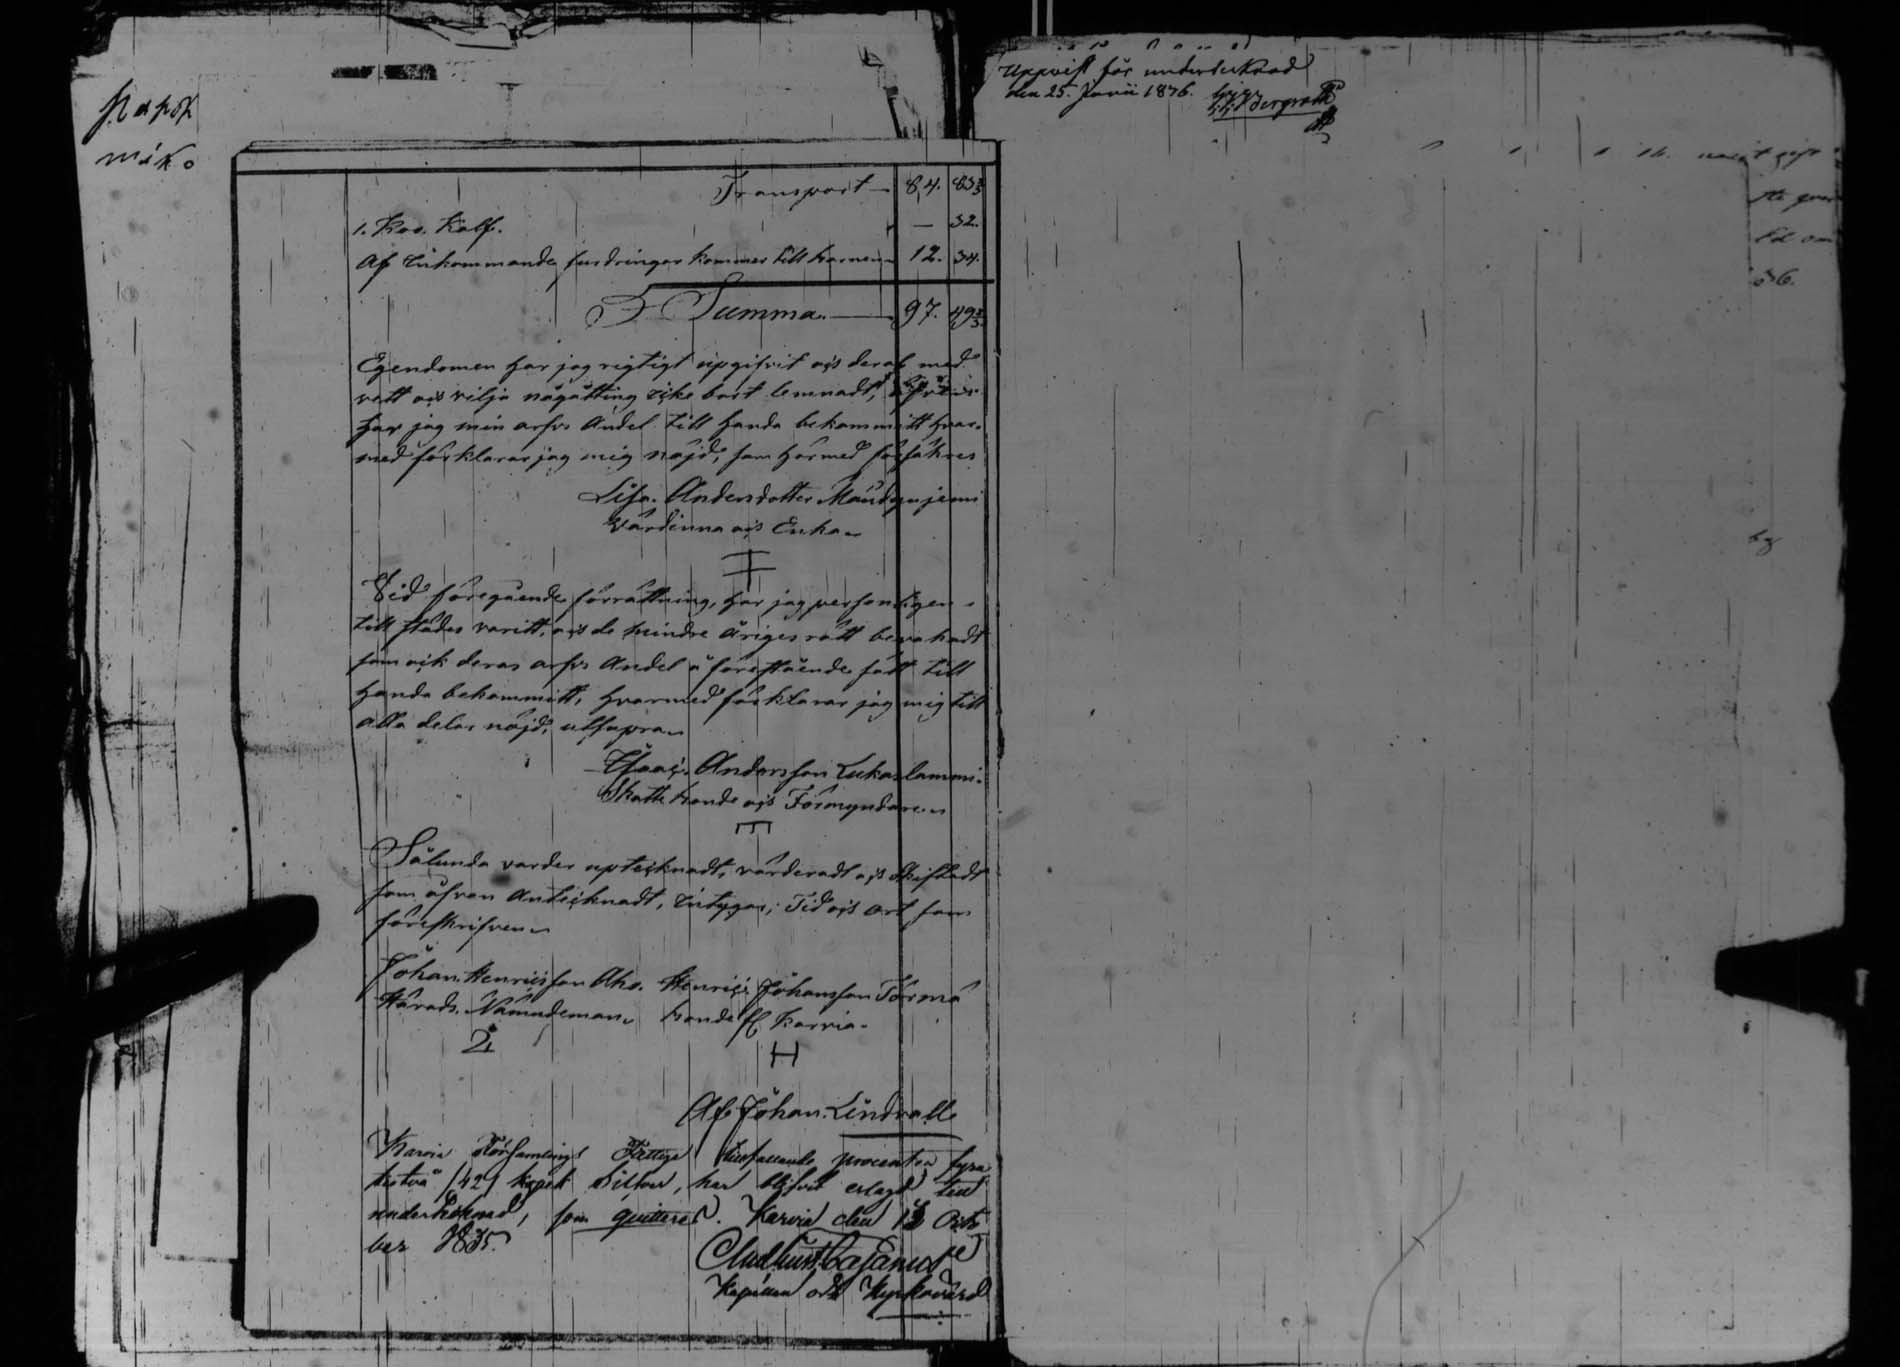 Uppvist för undertecknad
den 25. Junii 1876.
Transport — 84. 83 2/3
1. Koo. Kalf. — 32.
Af Inkommande fordringar kommer till barnen 12. 34.
Summa. — 97. 49 2/3
Egendomen har jag rigtigt upgifvit och deraf med
vett och vilja någåtting icke bort lemnadt,
har jag min arfvs Andel till handa bekommitt hvar-
med förklarar jag mig nöjd, som härmed försäkres
Lisa. Andersdotter
Värdinna och Enka
Vid föregående förrättning, har jag personligen
till städes varitt, och de mindre åriges rätt bevakadt
som ock deras arfvs Andel å föreståënde fått till
handa bekommitt, hvarmed förklarar jag mig till
alla delar nöjd, utsupra
Isaac. Andersson Lukaslammi.
Skatte bonde och Förmyndare
Sålunda varder uptecknadt, värderadt och skiftadt
som ofvan Antecknadt, intygar; Tid och ort som
föreskrifven
Johan. Henricsson Aho. Henric. Johansson Törmä
Härads. Nämndeman bonde fr. Karvia.
Af Johan. Lindvall
Karvia Församlings Fattige tillfallande procenter fyra
tiotvå /42/ kopek Silfver, har blifvit erlagd till
undertecknad, som quitteras. Karvia den 13 Octo
ber 1835.
Cajanus
Kapellan och Kyrkovärd